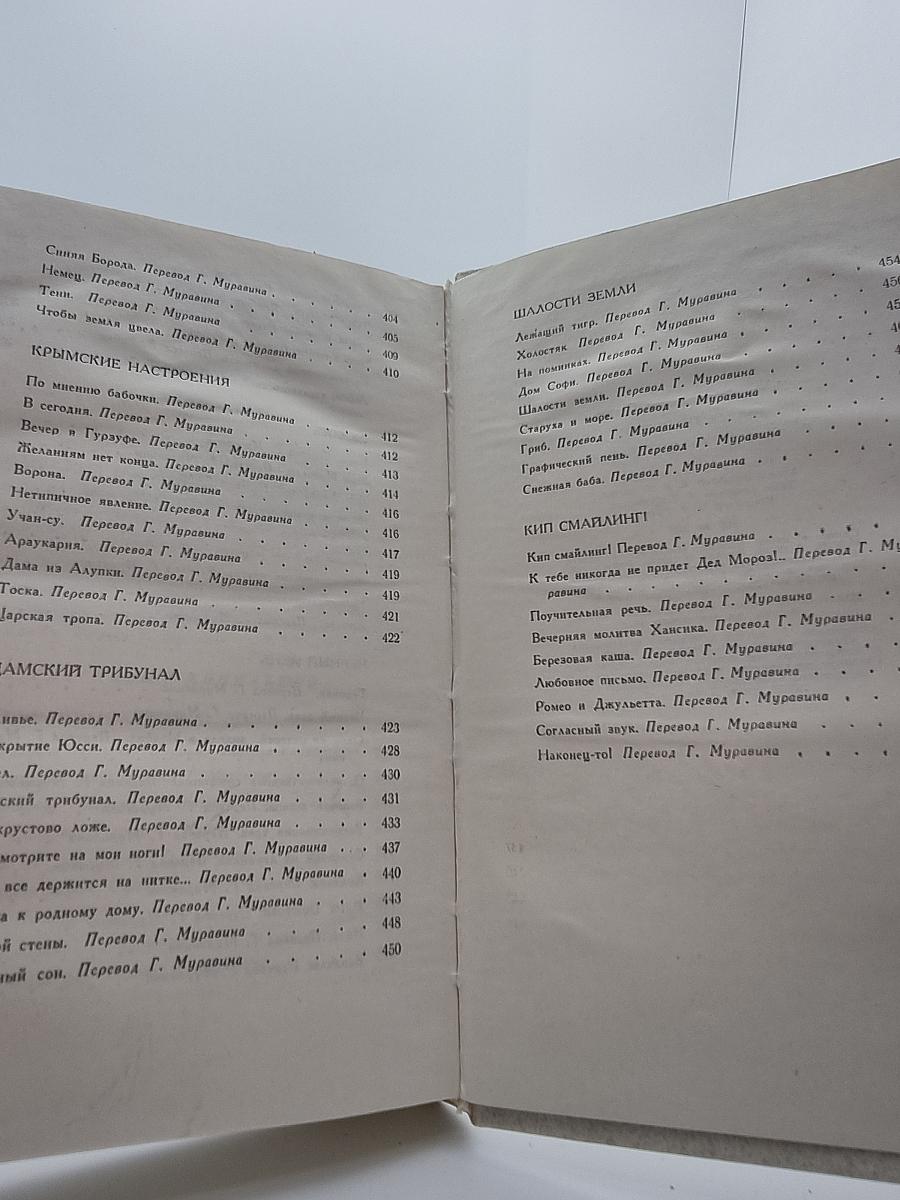 Синяя Борода. Перевод Г. Муравина . . . . . . 404
Немец. Перевод Г. Муравина . . . . . . . . 405
Тени. Перевод Г. Муравина . . . . . . . 409
Чтобы земля цвела. Перевод Г. Муравина . . . . 410
КРЫМСКИЕ НАСТРОЕНИЯ
По мнению бабочки. Перевод Г. Муравина . . . . 412
В сегодня. Перевод Г. Муравина . . . . . . . 412
Вечер в Гурзуфе. Перевод Г. Муравина . . . . 413
Желаниям нет конца. Перевод Г. Муравина . . . . 414
Ворона. Перевод Г. Муравина . . . . . . 416
Нетипичное явление. Перевод Г. Муравина . . . . 416
Учан-су. Перевод Г. Муравина . . . . . . 417
Араукария. Перевод Г. Муравина . . . . . . 419
Дама из Алупки. Перевод Г. Муравина . . . . . 419
Тоска. Перевод Г. Муравина . . . . . . . 421
Царская тропа. Перевод Г. Муравина . . . . . 422
ДАМСКИЙ ТРИБУНАЛ
Перевод Г. Муравина . . . . . . . . 423
Юсси. Перевод Г. Муравина . . . . . 428
Перевод Г. Муравина . . . . . . . 430
трибунал. Перевод Г. Муравина . . . . 431
ложе. Перевод Г. Муравина . . . . 433
на мои ноги! Перевод Г. Муравина . . . 437
все держится на нитке... Перевод Г. Муравина . 440
к родному дому. Перевод Г. Муравина . . . 443
стены. Перевод Г. Муравина . . . . . 448
сон. Перевод Г. Муравина . . . . . 450
ШАЛОСТИ ЗЕМЛИ
Лежащий тигр. Перевод Г. Муравина . . . . . 454
Холостяк Перевод Г. Муравина . . . . . .
На поминках. Перевод Г. Муравина . . . . .
Дом Софи. Перевод Г. Муравина . . . . .
Шалости земли. Перевод Г. Муравина . . . . .
Старуха и море. Перевод Г. Муравина . . . .
Гриб. Перевод Г. Муравина . . . . . .
Графический пень. Перевод Г. Муравина . . . .
Снежная баба. Перевод Г. Муравина . . . . .
КИП СМАЙЛИНГ!
Кип смайлинг! Перевод Г. Муравина . . . . .
К тебе никогда не придет Дед Мороз!.. Перевод Г. Му
равина . . . . . . . . . . .
Поучительная речь. Перевод Г. Муравина . . . .
Вечерняя молитва Хансика. Перевод Г. Муравина .
Березовая каша. Перевод Г. Муравина . . . .
Любовное письмо. Перевод Г. Муравина . . . .
Ромео и Джульетта. Перевод Г. Муравина . . .
Согласный звук. Перевод Г. Муравина . . . .
Наконец-то! Перевод Г. Муравина . . . . .